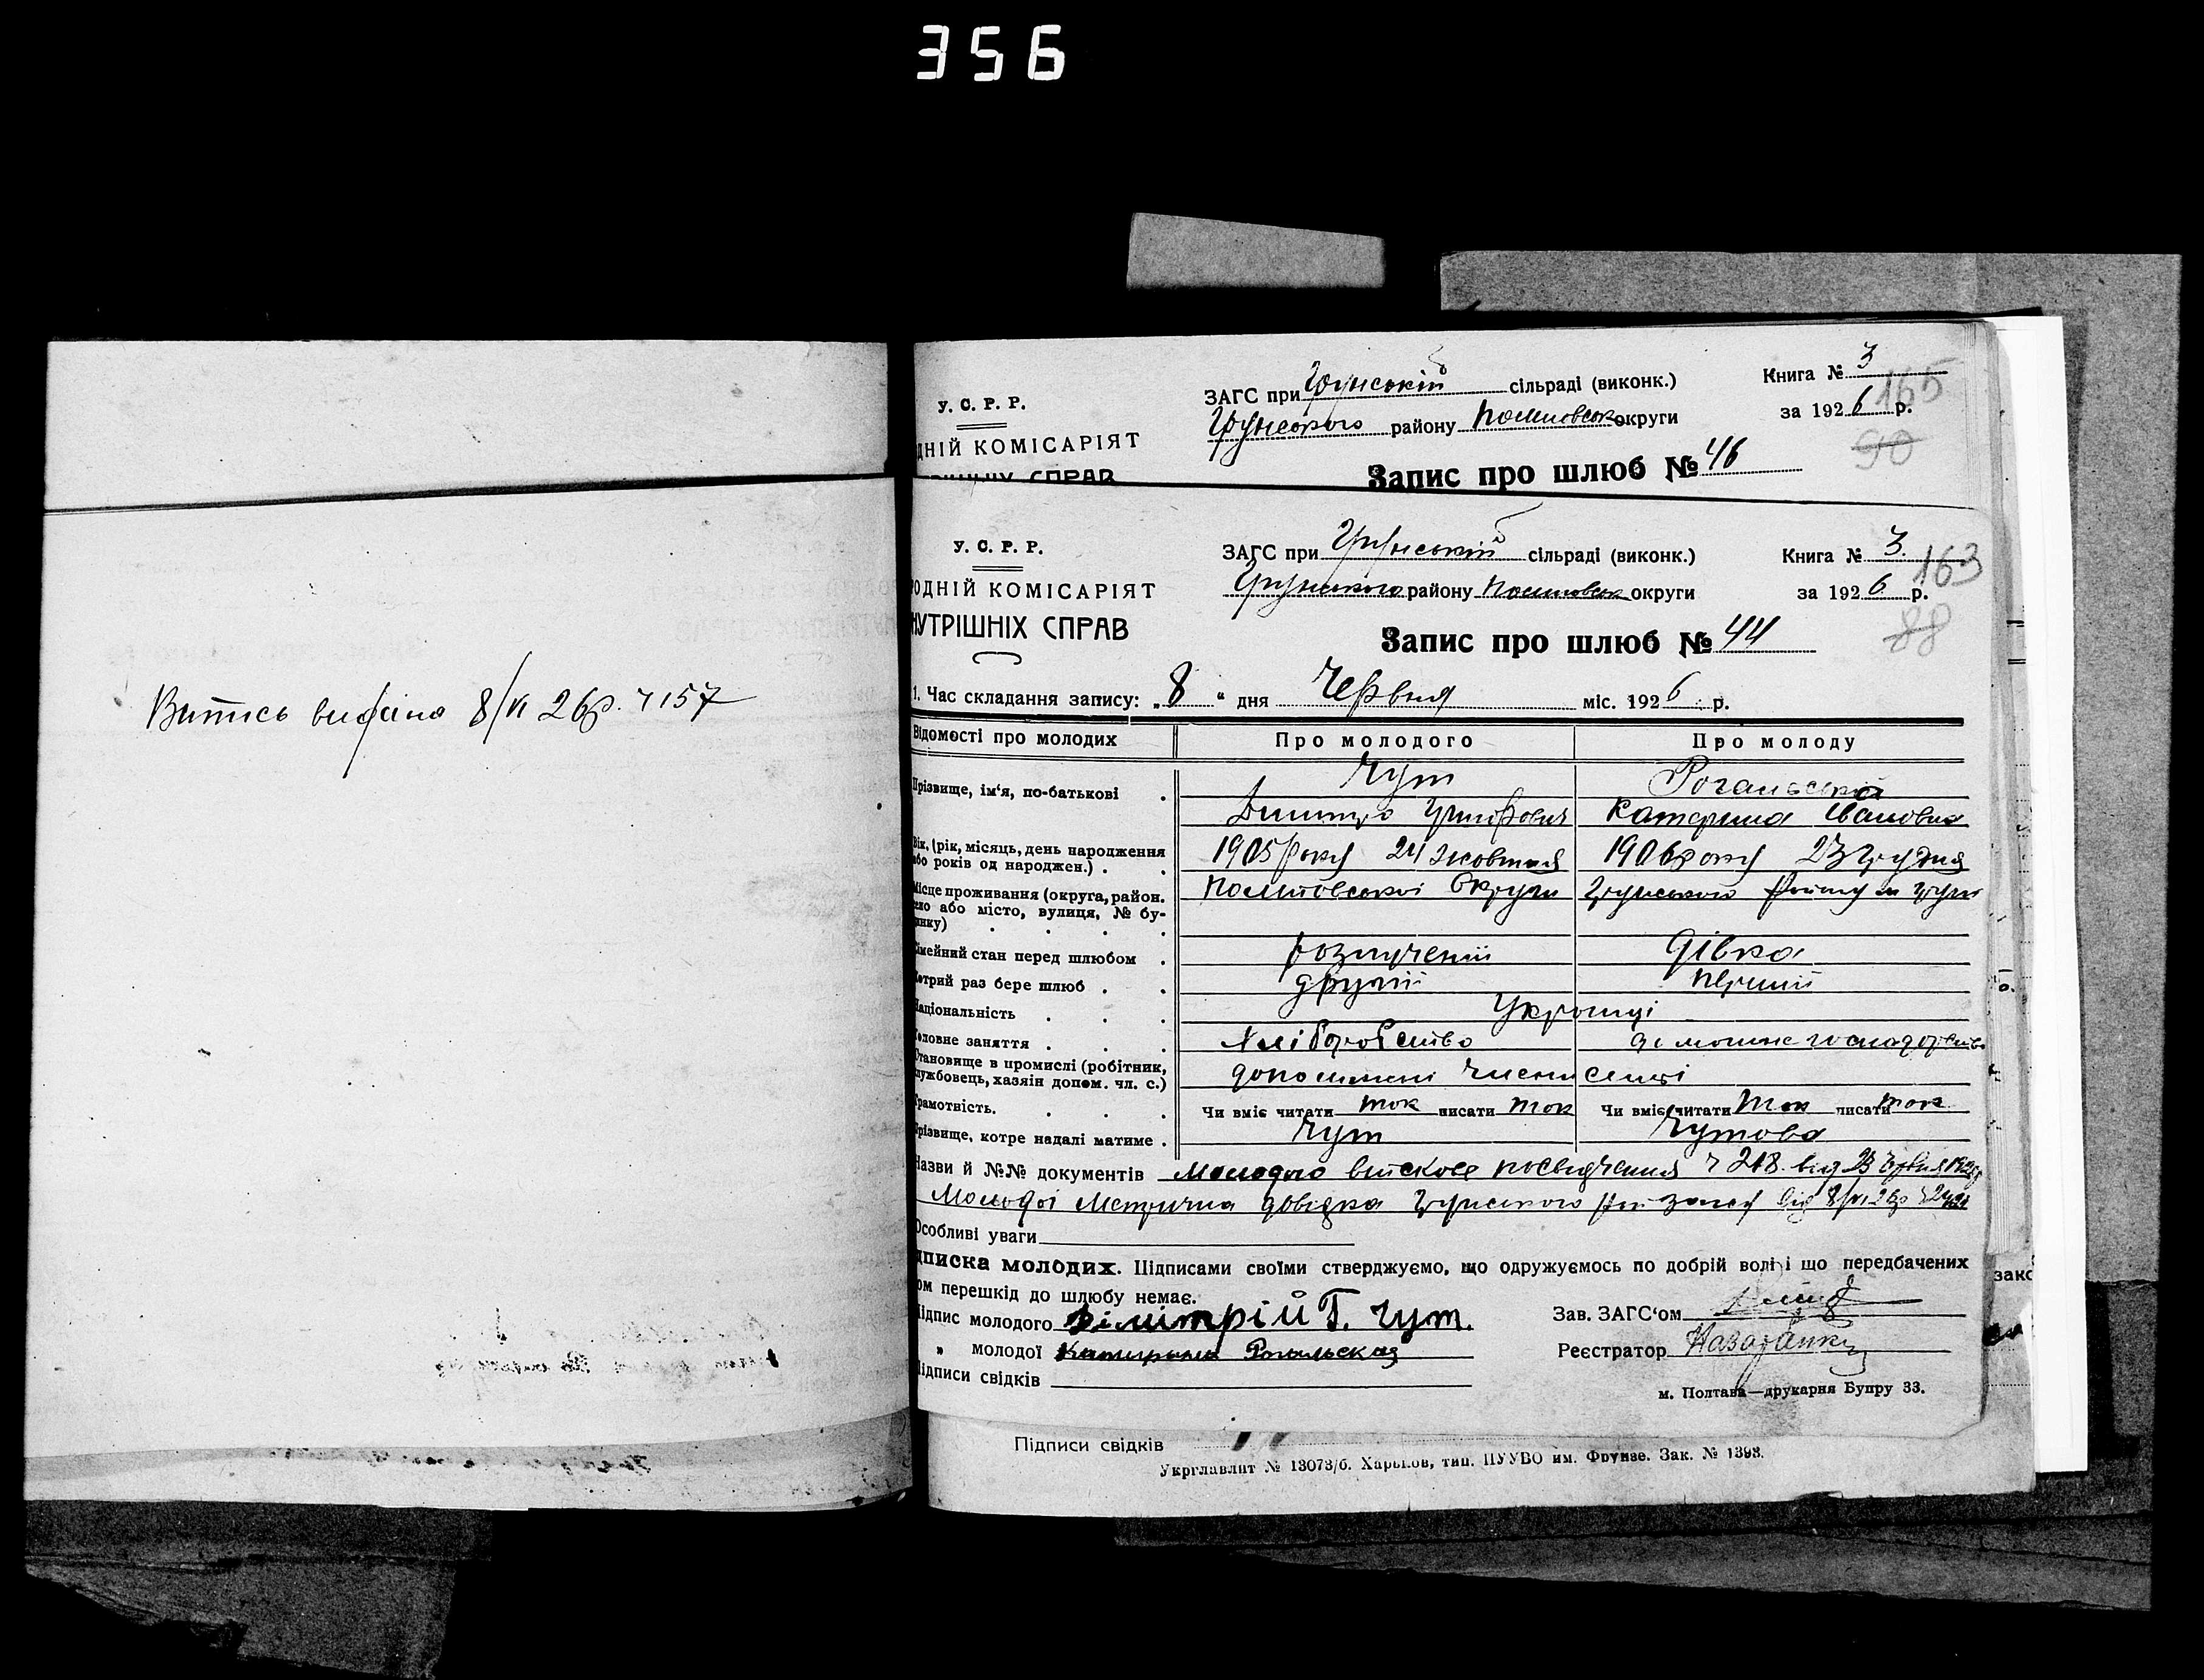 356
Витись видана 8/VI 26р. ч 157
У. С. Р. Р.
ДНІЙ КОМІСАРІЯТ
ЗАГС при Грунській сільраді (виконк.)
Грунського району Полтовськ округи
Книга № 3
165
за 1926 р.
90
Запис про шлюб № 46
У. С. Р. Р.
ОДНІЙ КОМІСАРІЯТ
НУТРІШНІХ СПРАВ
ЗАГС при Грунській сільраді (виконк.)
Грунського району Полтовськ округи
Книга № 3.
163
за 1926 р.
88
Запис про шлюб № 44
1. Час складання запису: „8" дня Червня міс. 1926 р.
Відомості про молодих Про молодого Про молоду
Прізвище, ім'я, по-батькові . Чут Рогальська
Дмитро Григорович Катерина Івановна
Вік, (рік, місяць, день народження або років од народжен.) . . 1905 року 24 жовтня 1906 року 23 грудня
Місце проживання (округа, район. село або місто, вулиця, № будинку) . . . . Полтовської Округи Грунського району м Грунь
Сімейний стан перед шлюбом . розлучений дівка
Котрий раз бере шлюб . . другий перший
Національність . . . Українці
Головне заняття . . . Хліборобство домошнє господорство
Становище в промислі (робітник, службовець, хазяїн допом. чл. с.) допоможні члени семї
Грамотність. . . . Чи вміє читати так писати так Чи вміє читати так писати так
Прізвище, котре надалі матиме . Чут Чутова
Назви й №№ документів Молодого війскове посвідчення ч 218 від
Молодої Метрична довідка Грунського рай загсу від 8/VI 26р
Особливі уваги
дписка молодих. Підписами своїми стверджуємо, що одружуємось по добрій волі і що передбачених
ом перешкід до шлюбу немає.
Підпис молодого Дімітрій Г. Чут.
„ молодої Катирина Рогальская
Підписи свідків
Зав. ЗАГС'ом
Реєстратор
м. Полтава—друкарня Бупру 33.
зако
Підписи свідків
Укрглавлит № 13073/б. Харьков, тип. ПУУВО им. Фрунзе. Зак. № 1393.